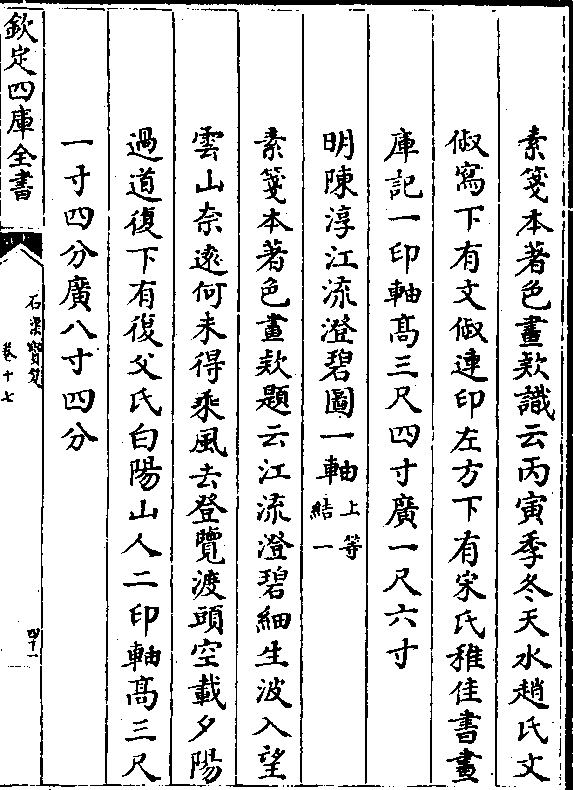 素箋本著色畫欵識云丙寅季冬天水趙氏文
俶寫下有文俶連印左方下有宋氏稚佳書畫
庫記一印軸髙三尺四寸廣一尺六寸
明陳淳江流澄碧圖一軸上等
結一
素箋本著色畫欵題云江流澄碧細生波入望
雲山奈逺何未得乘風去登覽渡頭空載夕陽
過道復下有復父氏白陽山人二印軸髙三尺
一寸四分廣八寸四分
欽定四庫全書
石渠寶笈
卷十七
四十一